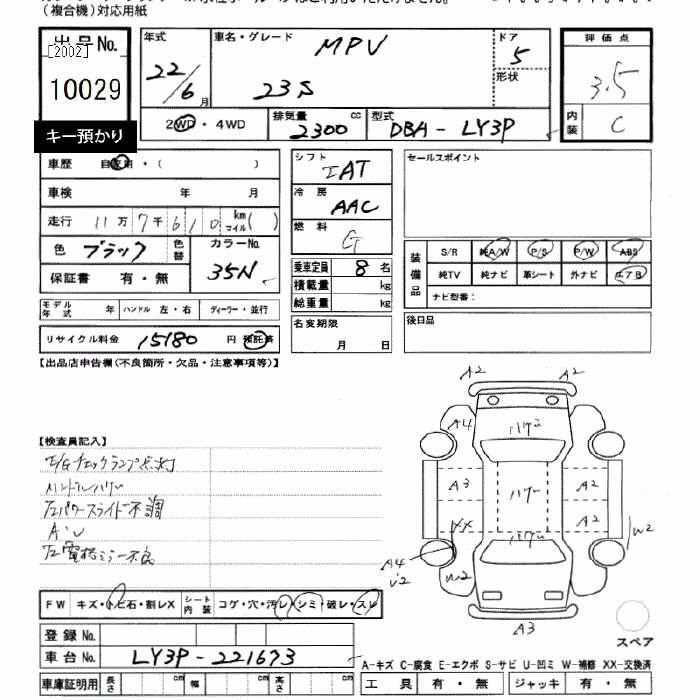 （複合機）対応用紙
出品No.
[2002]
10029
キー預かり
年式
22/6月
車名・グレード
MPV
23S
ドア
5
形状
評価点
3.5
内装
C
2WD・4WD
排気量
2300cc
型式
DBA-LY3P
車歴 自家用・（ ）
車検 年 月
走行 11万7千610 km マイル( )
色 ブラック 色替
カラーNo.
35N
保証書 有・無
モデル年式 年 ハンドル 左・右 ディーラー・並行
リサイクル料金 15180 円 預託済
シフト
IAT
冷房
AAC
燃料
G
乗車定員 8 名
積載量 kg
総重量 kg
名変期限
月 日
セールスポイント
装備品
S/R 純A/W P/S P/W ABS
純TV 純ナビ 革シート 外ナビ エアB
ナビ型番：
後日品
【出品店申告欄（不良箇所・欠品・注意事項等）】
【検査員記入】
E/Gチェックランプ点灯
ハンドルハゲー
パワースライド不調
A・U
電格ミラー不良
A2 A2
A4 ハゲー
A3 ハゲー A2
XX A2
ハゲー W2
A4
W2
A3
スペア
FW キズ・トビ石・割レX シート内装 コゲ・穴・汚レ・シミ・破レ・スレ
登録No.
車台No. LY3P-221673
車庫証明用 長さ cm 幅 cm 高さ cm
A-キズ C-腐食 E-エクボ S-サビ U-凹ミ W-補修 XX-交換済
工具 有・無 ジャッキ 有・無